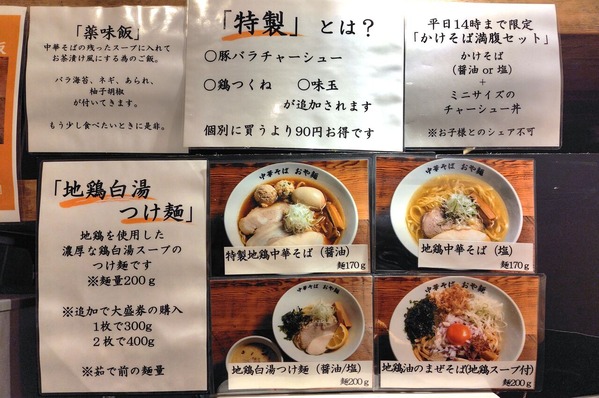 「薬味飯」
中華そばの残ったスープに入れて
お茶漬け風にする為のご飯。
バラ海苔、ネギ、あられ、
柚子胡椒
が付いてきます。
もう少し食べたいときに是非。
「特製」とは？
○豚バラチャーシュー
○鶏つくね ○味玉
が追加されます
個別に買うより90円お得です
平日14時まで限定
「かけそば満腹セット」
かけそば
（醤油 or 塩）
+
ミニサイズの
チャーシュー丼
※お子様とのシェア不可
「地鶏白湯
つけ麺」
地鶏を使用した
濃厚な鶏白湯スープの
つけ麺です
※麺量200g
※追加で大盛券の購入
1枚で300g
2枚で400g
※茹で前の麺量
中華そば おや麺
特製地鶏中華そば（醤油）
麺170g
中華そば おや麺
地鶏中華そば（塩）
麺170g
中華そば おや麺
地鶏白湯つけ麺（醤油/塩）
麺200g
中華そば おや麺
地鶏油のまぜそば(地鶏スープ付)
麺200g